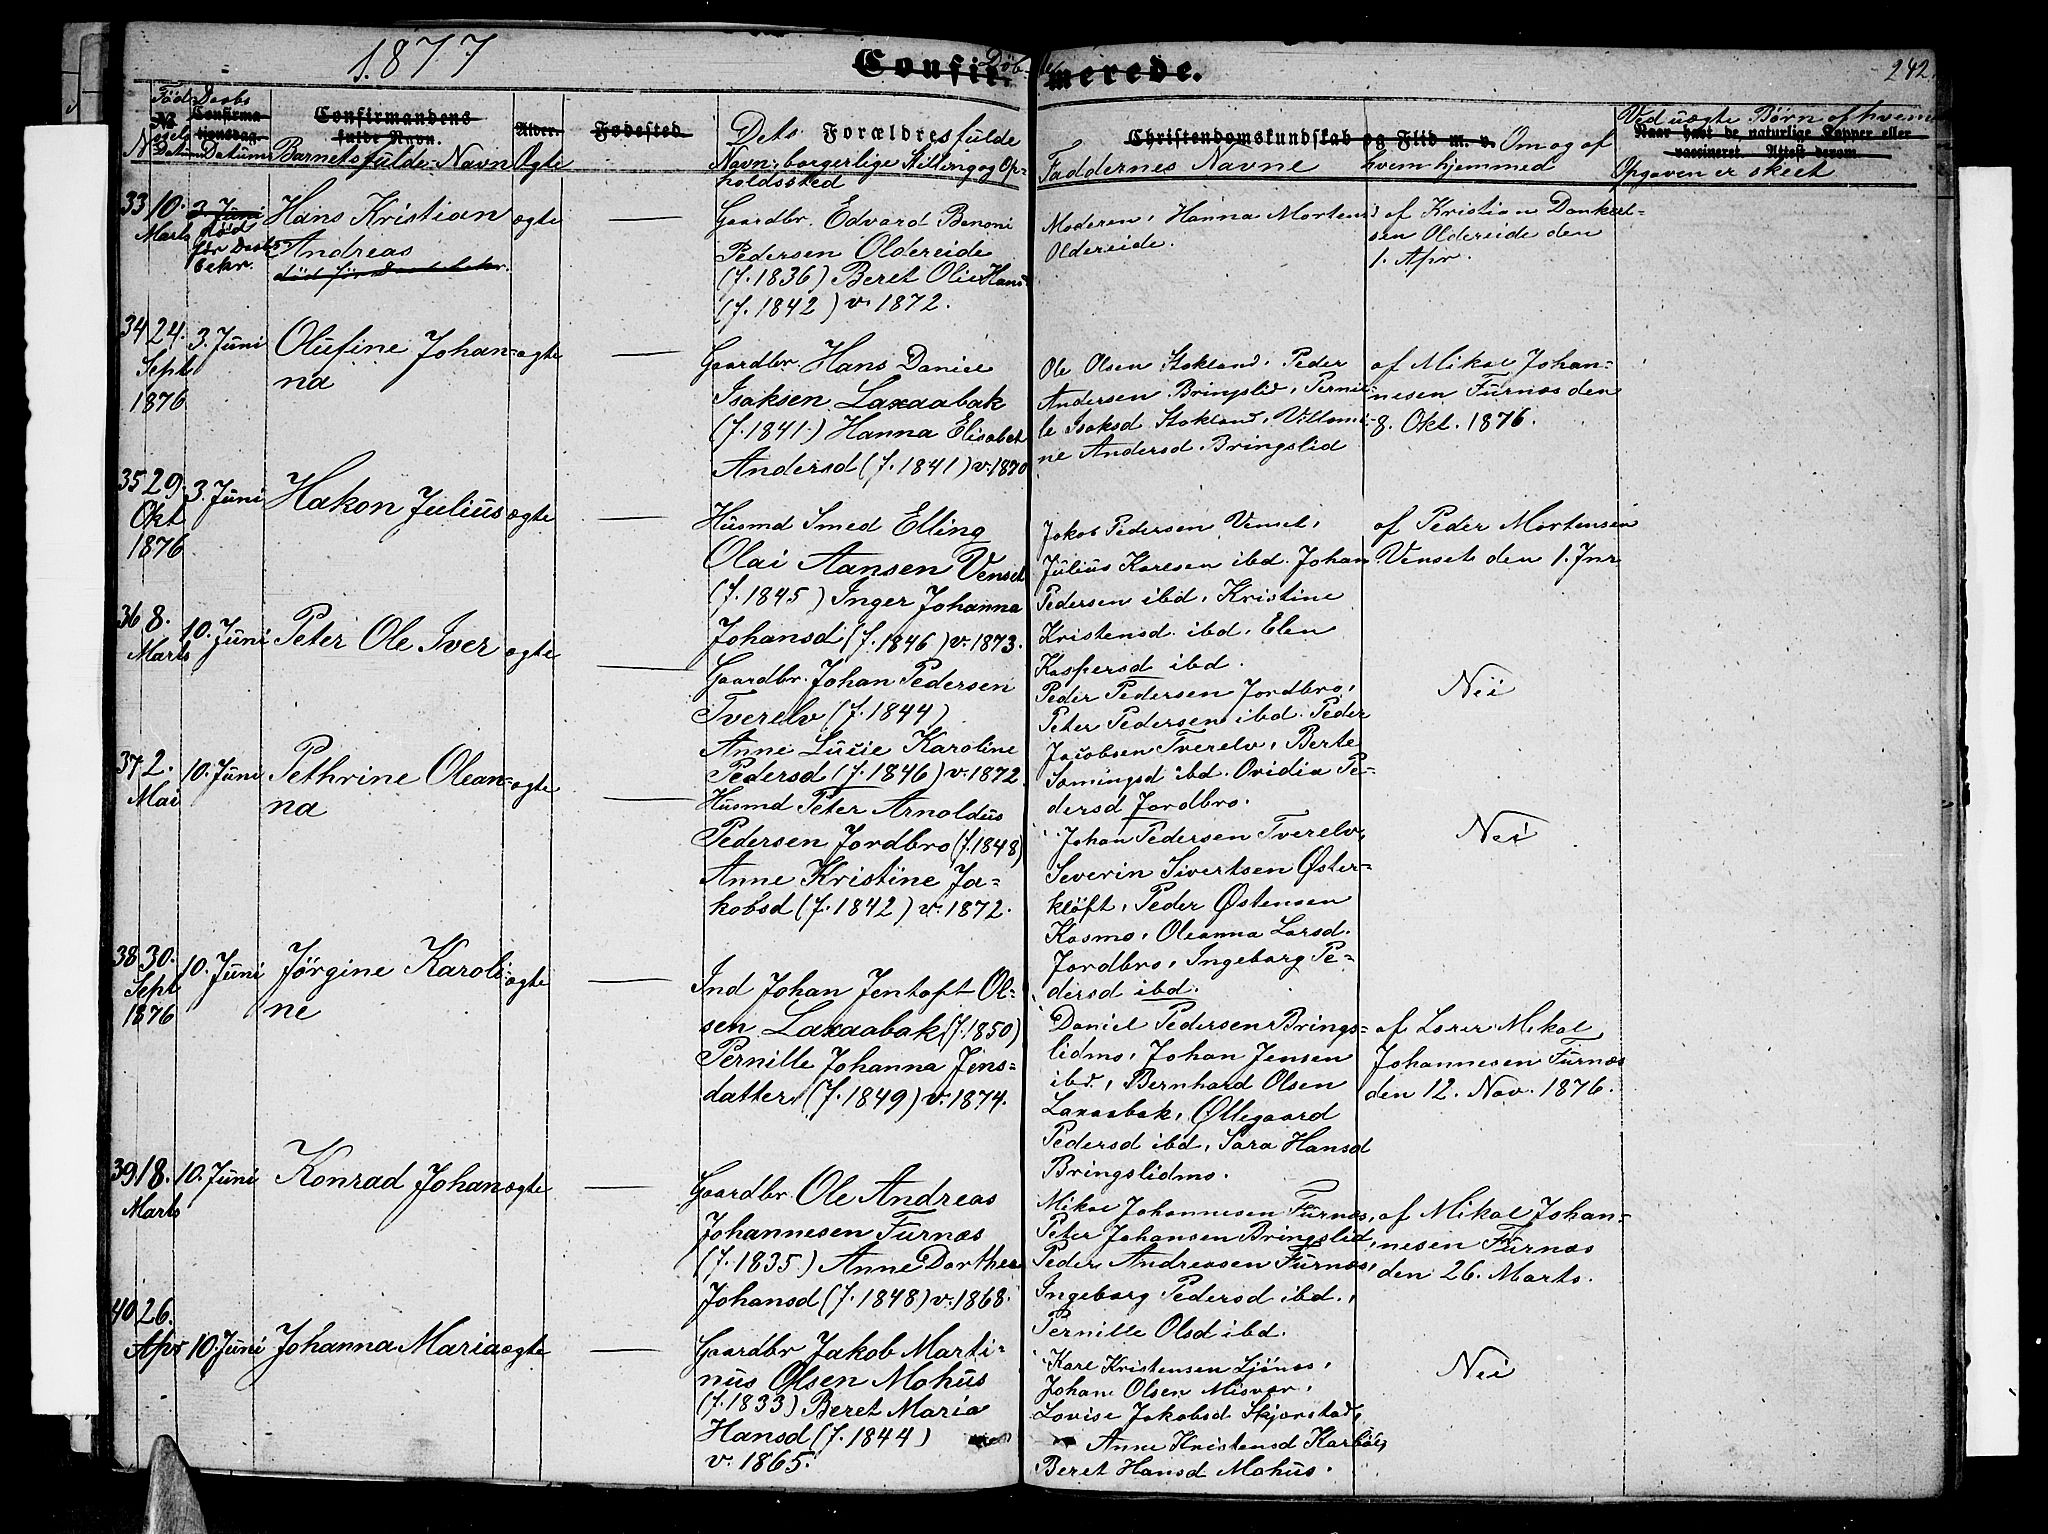 1877
Confirmerede.
Döbte
242.
Fødsels Datum
Daabs Datum
No
Confirmationsdag.
Confirmandens fulde Navn.
Barnets fulde Navn
Alder.
Ægte
Fødested.
Dets Forældres fulde
Navn: borgerlige Stilling og Op-
holdssted
Christendomskundskab og Flid m. v.
Faddernes Navne
Om og af
hvem hjemmed
Ved uægte Børn af hvem
Naar havt de naturlige Kopper eller
vaccineret. Attest derom.
Opgaven er skeet
33 10. Marts
3. Juni
död
før Daabs
bekr.
Hans Kristian
Andreas
død før Daabs bekr.
ægte
Gaardbr. Edvard Benoni
Pedersen Oldereide
(f. 1836) Beret Olie Hans
(f. 1842) v. 1872.
Moderen, Hanna Mortens
Oldereide.
af Kristian Dankert-
sen Oldereide den
1. Apr.
34 24. Sept 1876
3. Juni
Olufine Johan-
na
ægte
Gaardbr Hans Daniel
Isaksen Laxaabak
(f. 1841.) Hanna Elisabet
Andersd (f. 1841) v. 1870
Ole Olsen Stokland, Peder
Andersen Bringslid, Pernil-
le Isaksd Stokland, Villomi-
ne Andersd. Bringslid
af Mikal Johan-
nesen Furnæs den
8. Okt. 1876.
35 29. Okt 1876
3. Juni
Hakon Julius
ægte
Husmd Smed Elling
Olai Aansen Venset
(f. 1845) Inger Johanna
Johansd (f. 1846) v. 1873.
Jakob Pedersen Venset,
Julius Karlsen ibd. Johan
Pedersen ibd, Kristine
Kristensd. ibd, Elen
Kaspersd ibd.
af Peder Mortensen
Venset den 1. Jnr
36 8. Marts
10. Juni
Peter Ole Iver
ægte
Gaardbr. Johan Pedersen
Tverelv (f. 1844)
Anne Lucie Karoline
Pedersd (f. 1846) v. 1872.
Peder Pedersen Jordbro,
Peter Pedersen ibd. Peder
Jacobsen Tverelv, Berte
Somingsd ibd. Ovidia Pe-
dersd Jordbro.
Nei
37 2. Mai
10. Juni
Pethrine Olean-
na
ægte
Husmd Peter Arnoldus
Pedersen Jordbro (f. 1848)
Anne Kristine Ja-
kobsd (f. 1842) v. 1872.
Johan Pedersen Tverelv,
Severin Sivertsen Øster-
kløft, Peder Østensen
Kosmo, Oleanna Larsd.
Jordbro, Ingeborg Pe-
dersd ibd.
Nei
38 30. Sept 1876
10. Juni
Jørgine Karoli-
ne
ægte
Ind Johan Jentoft Ol-
sen Laxaabak (f. 1850)
Pernille Johanna Jens-
datter, (f. 1849) v. 1874.
Daniel Pedersen Brings-
lidmo, Johan Jensen
ibd., Bernhard Olsen
Laxaabak, Øllegaard
Pedersd ibd, Sara Hansd
Bringslidmo.
af Lærer Mikal
Johannesen Furnæs
den 12. Nov. 1876.
39 18. Marts
10. Juni
Konrad Johan
ægte
Gaardbr. Ole Andreas
Johannesen Furnæs
(f. 1835.) Anne Dorthea
Johansd (f. 1848) v. 1868.
Mikal Johannesen Furnæs,
Peter Johansen Bringslid,
Peder Andreasen Furnæs,
Ingeborg Pedersd ibd.,
Pernille Olsd ibd.
af Mikal Johan-
nesen Furnæs
den 26. Marts.
40 26. Apr
10 Juni
Johanna Maria
ægte
Gaardbr Jakob Marti-
nus Olsen Mohus
(f. 1833) Beret Maria
Hansd (f. 1844)
v. 1865.
Kare Kristensen Ljönes,
Johan Olsen Misvær,
Lovise Jakobsd Skjerstad,
Anne Kristensd Karbøl,
Beret Hansd Mohus.
Nei